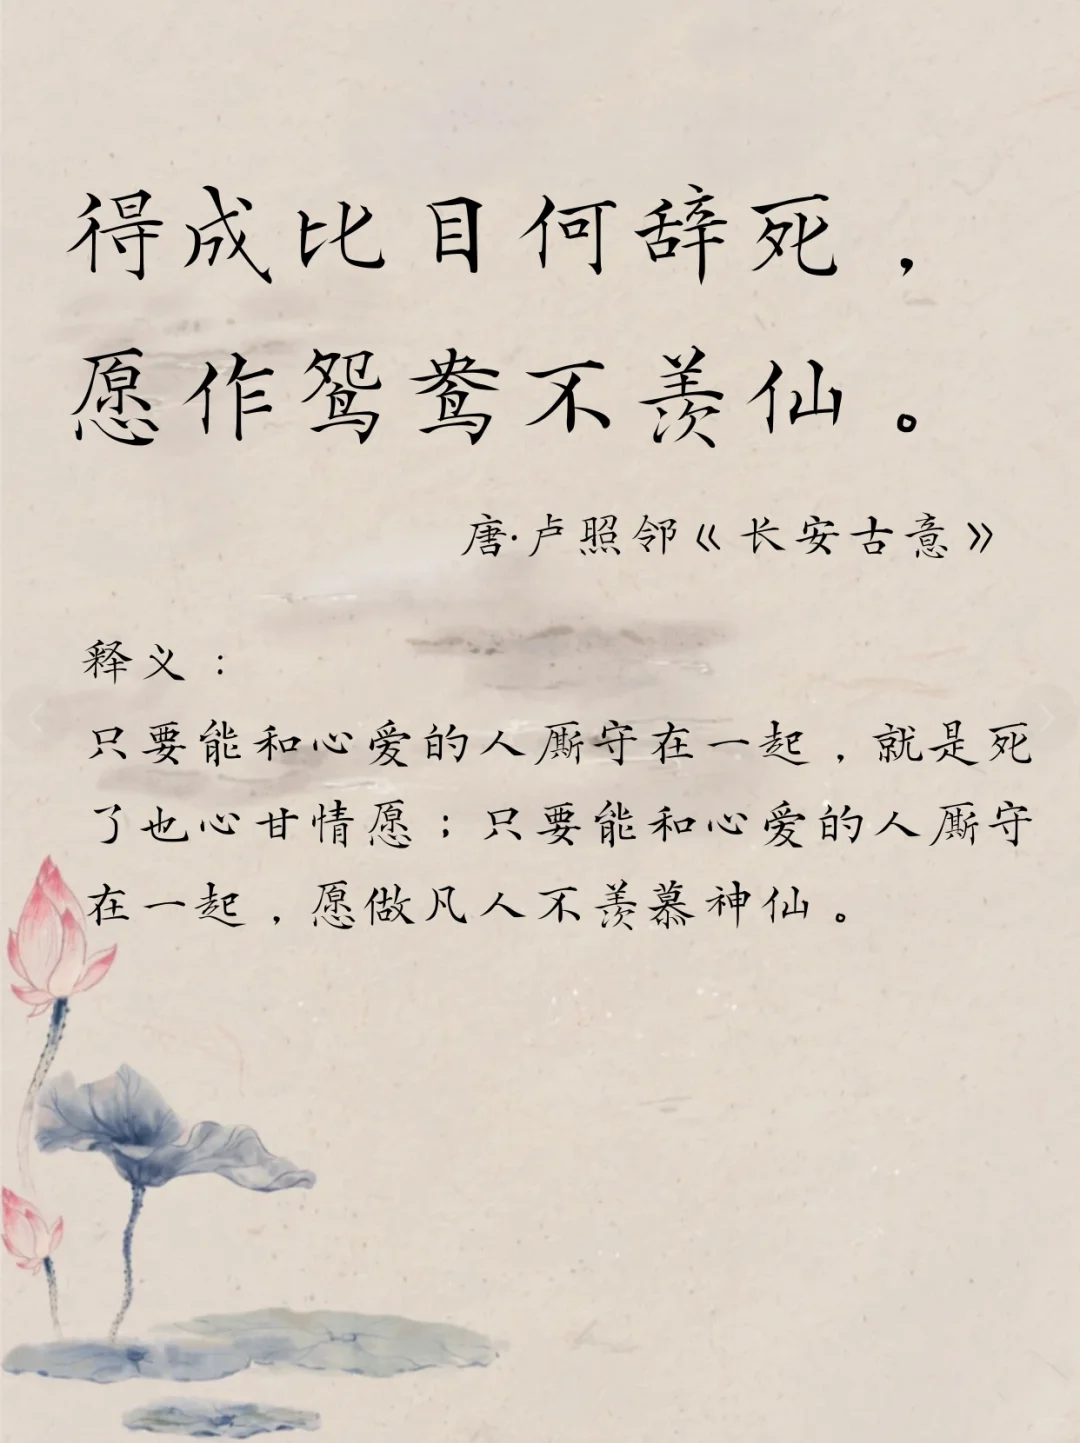 得成比目何辞死，
愿作鸳鸯不羡仙。
唐·卢照邻《长安古意》
释义：
只要能和心爱的人厮守在一起，就是死
了也心甘情愿；只要能和心爱的人厮守
在一起，愿做凡人不羡慕神仙。